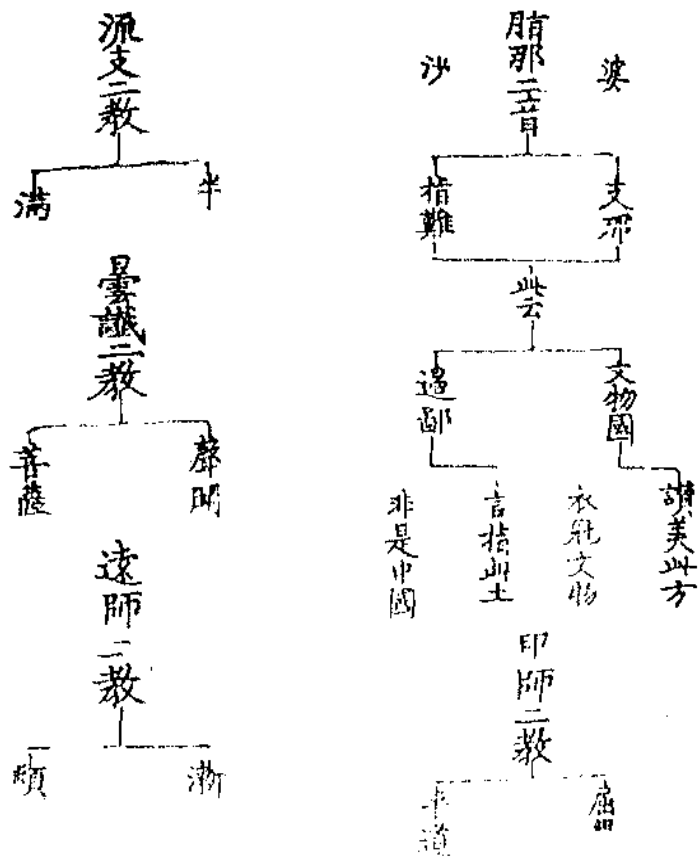 婆
脂那二音
沙
支那
指難
此云
文物國
邊鄙
讃美此方
衣冠文物
言指此土
非是中國
印師二教
屈曲
平道
流支二教
半
滿
曇讖二教
聲聞
菩薩
遠師二教
漸
頓